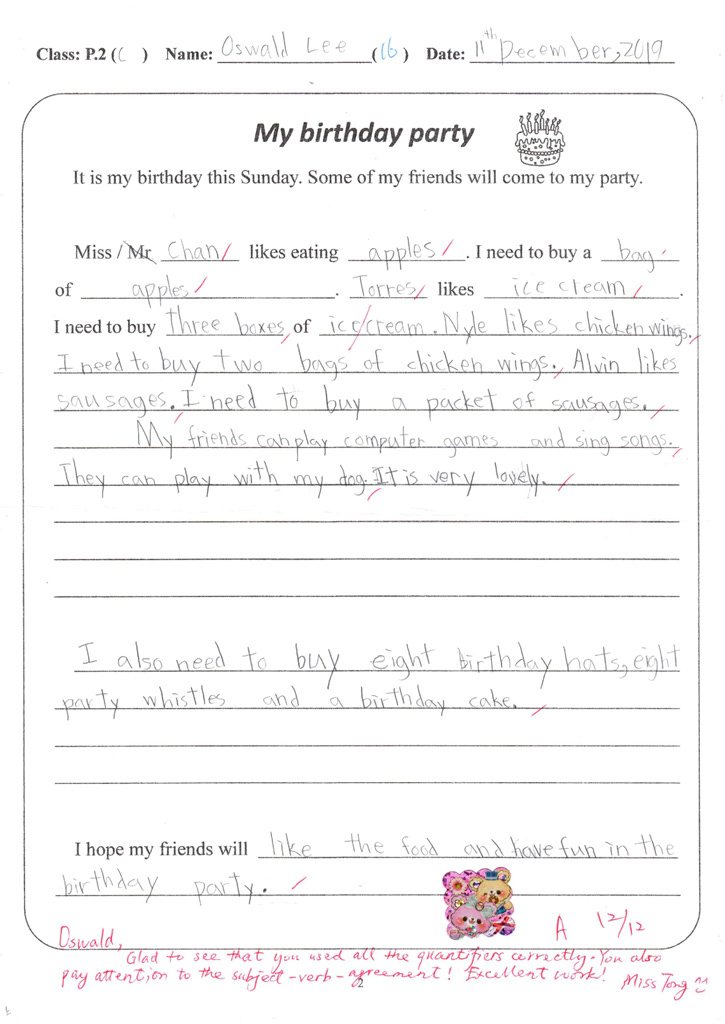 Class: P.2 (C) Name: Oswald Lee (16) Date: 11th December, 2019
My birthday party
It is my birthday this Sunday. Some of my friends will come to my party.
Miss / Mr Chan likes eating apples. I need to buy a bag
of apples. Torres likes ice cleam.
I need to buy three boxes of ice cream. Nyle likes chicken wings.
I need to buy two bags of chicken wings. Alvin likes
sausages. I need to buy a packet of sausages.
My friends can play computer games and sing songs.
They can play with my dog. It is very lovely.
I also need to buy eight birthday hats, eight
party whistles and a birthday cake.
I hope my friends will like the food and have fun in the
birthday party.
A 12/12
Oswald,
Glad to see that you used all the quantifiers correctly. You also
pay attention to the subject-verb-agreement! Excellent work!
Miss Tong
2